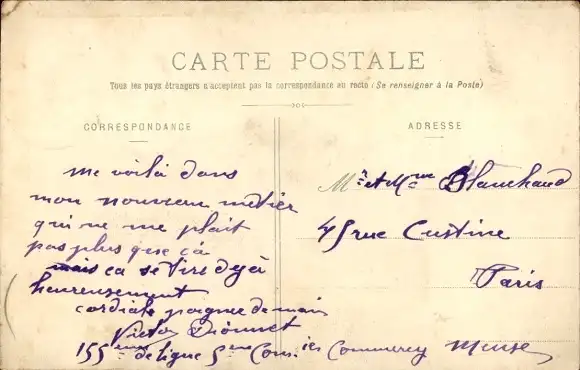 CARTE POSTALE
Tous les pays étrangers n'acceptent pas la correspondance au recto (Se renseigner à la Poste)
CORRESPONDANCE
me voilà dans
mon nouveau métier
qui ne me plait
pas plus que ça
mais ca se tire dejà
heureusement
cordiale poignee de main
Victor
155eme de ligne 5eme Commercy Meuse
ADRESSE
Mr et Mme Blanchard
45 rue Custine
Paris